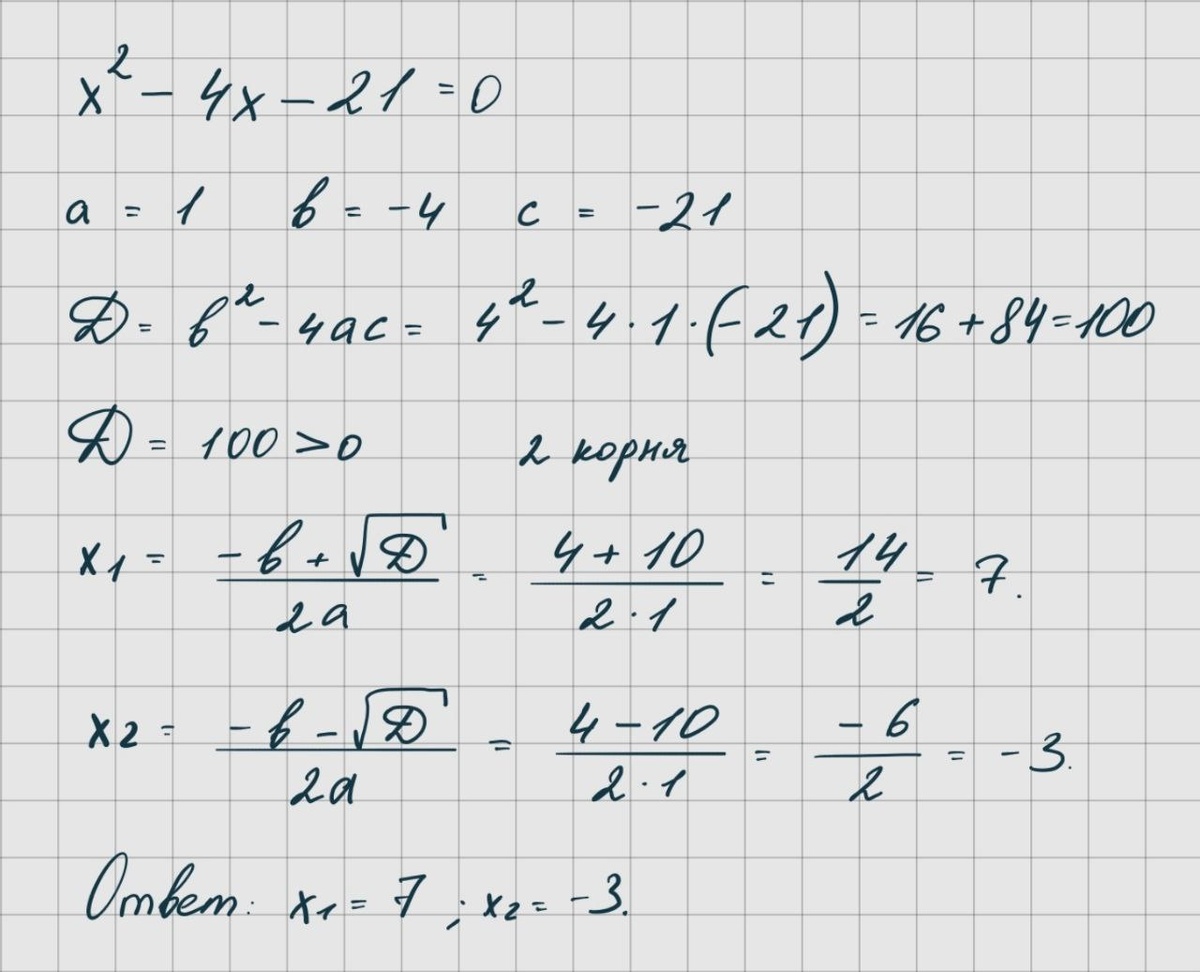 x² - 4x - 21 = 0
a = 1 b = -4 c = -21
D = b² - 4ac = 4² - 4 · 1 · (-21) = 16 + 84 = 100
D = 100 > 0 2 корня
x₁ = (-b + √D) / 2a = (4 + 10) / (2 · 1) = 14 / 2 = 7.
x₂ = (-b - √D) / 2a = (4 - 10) / (2 · 1) = -6 / 2 = -3.
Ответ: x₁ = 7 ; x₂ = -3.